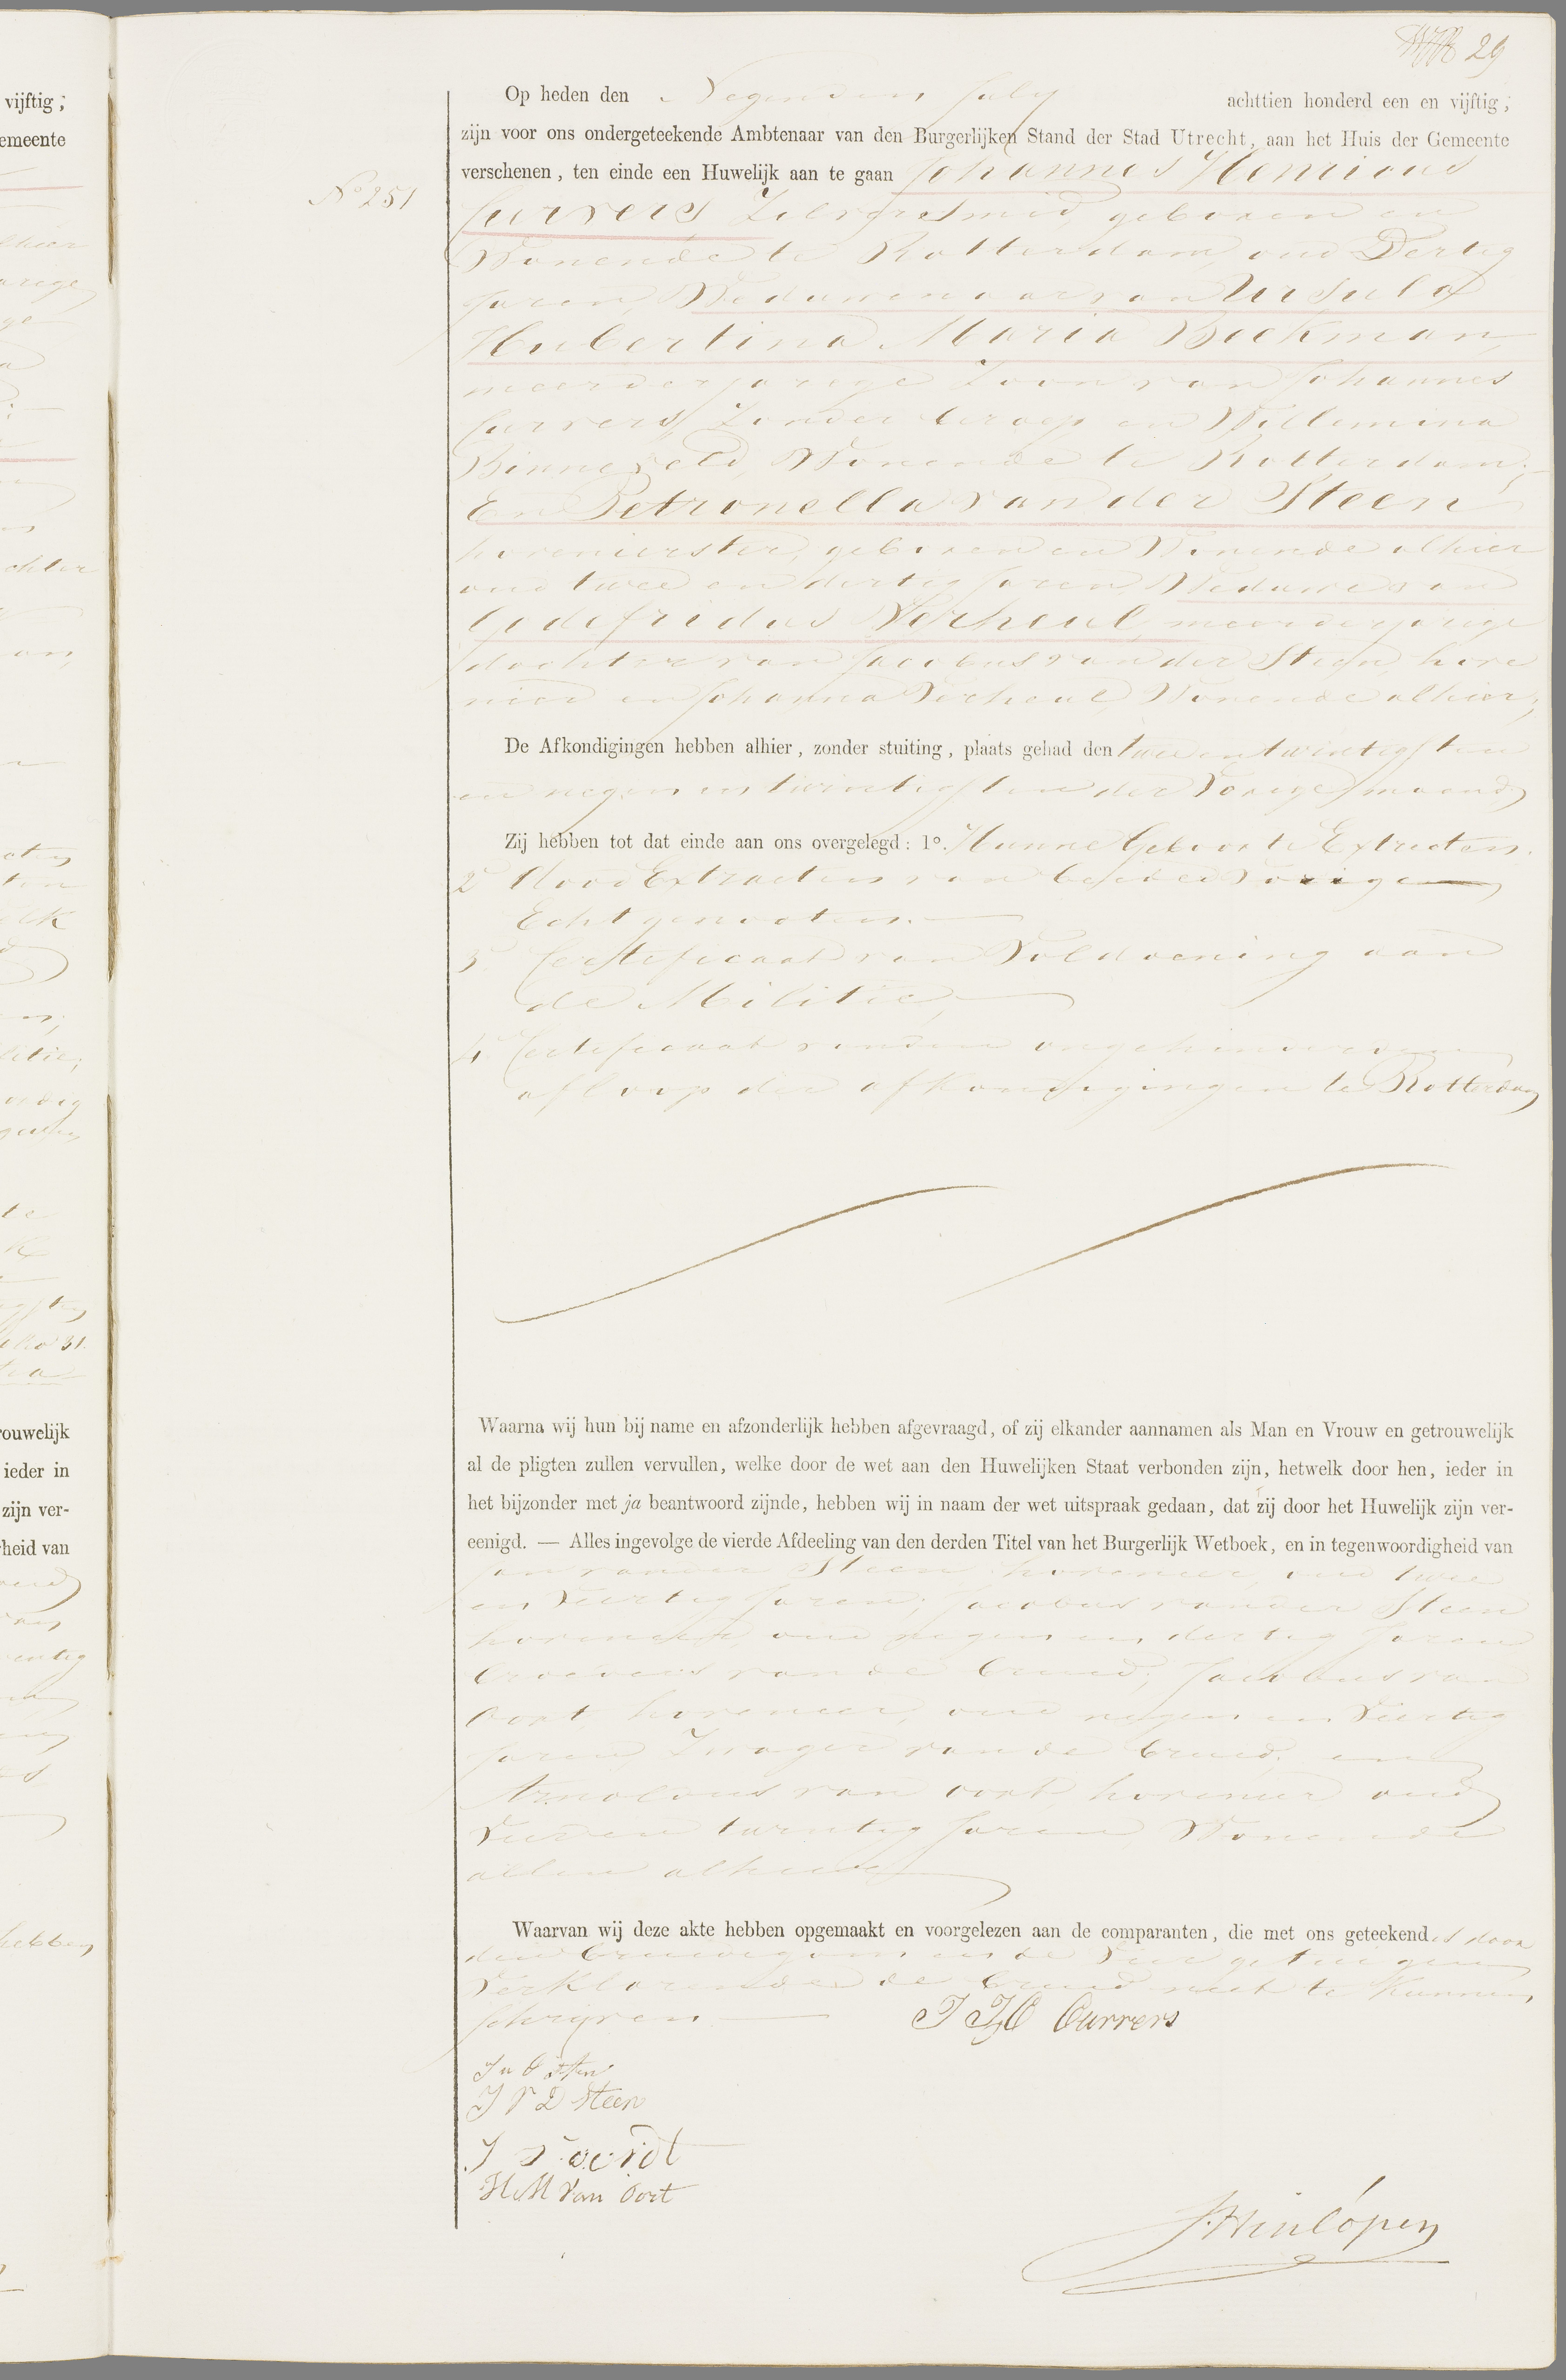 29
Op heden den Negenden July achttien honderd een en vijftig;
zijn voor ons ondergeteekende Ambtenaar van den Burgerlijken Stand der Stad Utrecht, aan het Huis der Gemeente
verschenen, ten einde een Huwelijk aan te gaan Johannes Henricus
No 251
Currers Zilversmid, geboren en
Wonende te Rotterdam, oud Dertig
Jaren, Weduwenaar van Ursula
Hubertina Maria Beekman,
meerderjarige Zoon van Johannes
Currers, Zonder beroep en Willemina
Binneveld, Wonende te Rotterdam;
En Petronella van der Steen,
hovenierster, geboren en Wonende alhier
oud twee en dertig Jaren, Weduwe van
Godefridus Verheul, meerderjarige
dochter van Jacobus van der Steen, hove
nier en Johanna Verheul, Wonende alhier;
De Afkondigingen hebben alhier, zonder stuiting, plaats gehad den twee en twintigsten
en negen en twintigsten der Vorige maand,
Zij hebben tot dat einde aan ons overgelegd: 1o. Hunne Geboorte Extracten.
2 Dood Extracten van beider Vorige
Echtgenooten.
3 Certificaat van Voldoening aan
de Militie,
4 Certificaat van den ongehinderden
afloop der afkondigingen te Rotterdam
Waarna wij hun bij name en afzonderlijk hebben afgevraagd, of zij elkander aannamen als Man en Vrouw en getrouwelijk
al de pligten zullen vervullen, welke door de wet aan den Huwelijken Staat verbonden zijn, hetwelk door hen, ieder in
het bijzonder met ja beantwoord zijnde, hebben wij in naam der wet uitspraak gedaan, dat zij door het Huwelijk zijn ver-
eenigd. — Alles ingevolge de vierde Afdeeling van den derden Titel van het Burgerlijk Wetboek, en in tegenwoordigheid van
Jan van der Steen, hovenier, oud twee
en Veertig Jaren, Jacobus van der Steen
hovenier, oud negen en dertig Jaren
broeders van de bruid, Jacobus van
Oort hovenier, oud negen en Veertig
Jaren Zwager van de bruid, en
Arnoldus van Oort, hovenier oud
Vier en twintig Jaren, Wonende
allen alhier
Waarvan wij deze akte hebben opgemaakt en voorgelezen aan de comparanten, die met ons geteekend is door
den bruidegom en de Vier getuigen
Verklarende de bruid niet te Kunnen
Schrijven
J H Currers
J V D Steen
H M Van Oort